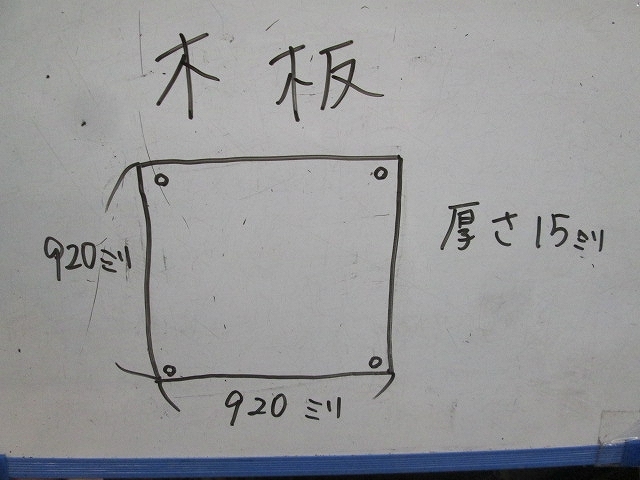 木板
920ミリ
厚さ15ミリ
920ミリ